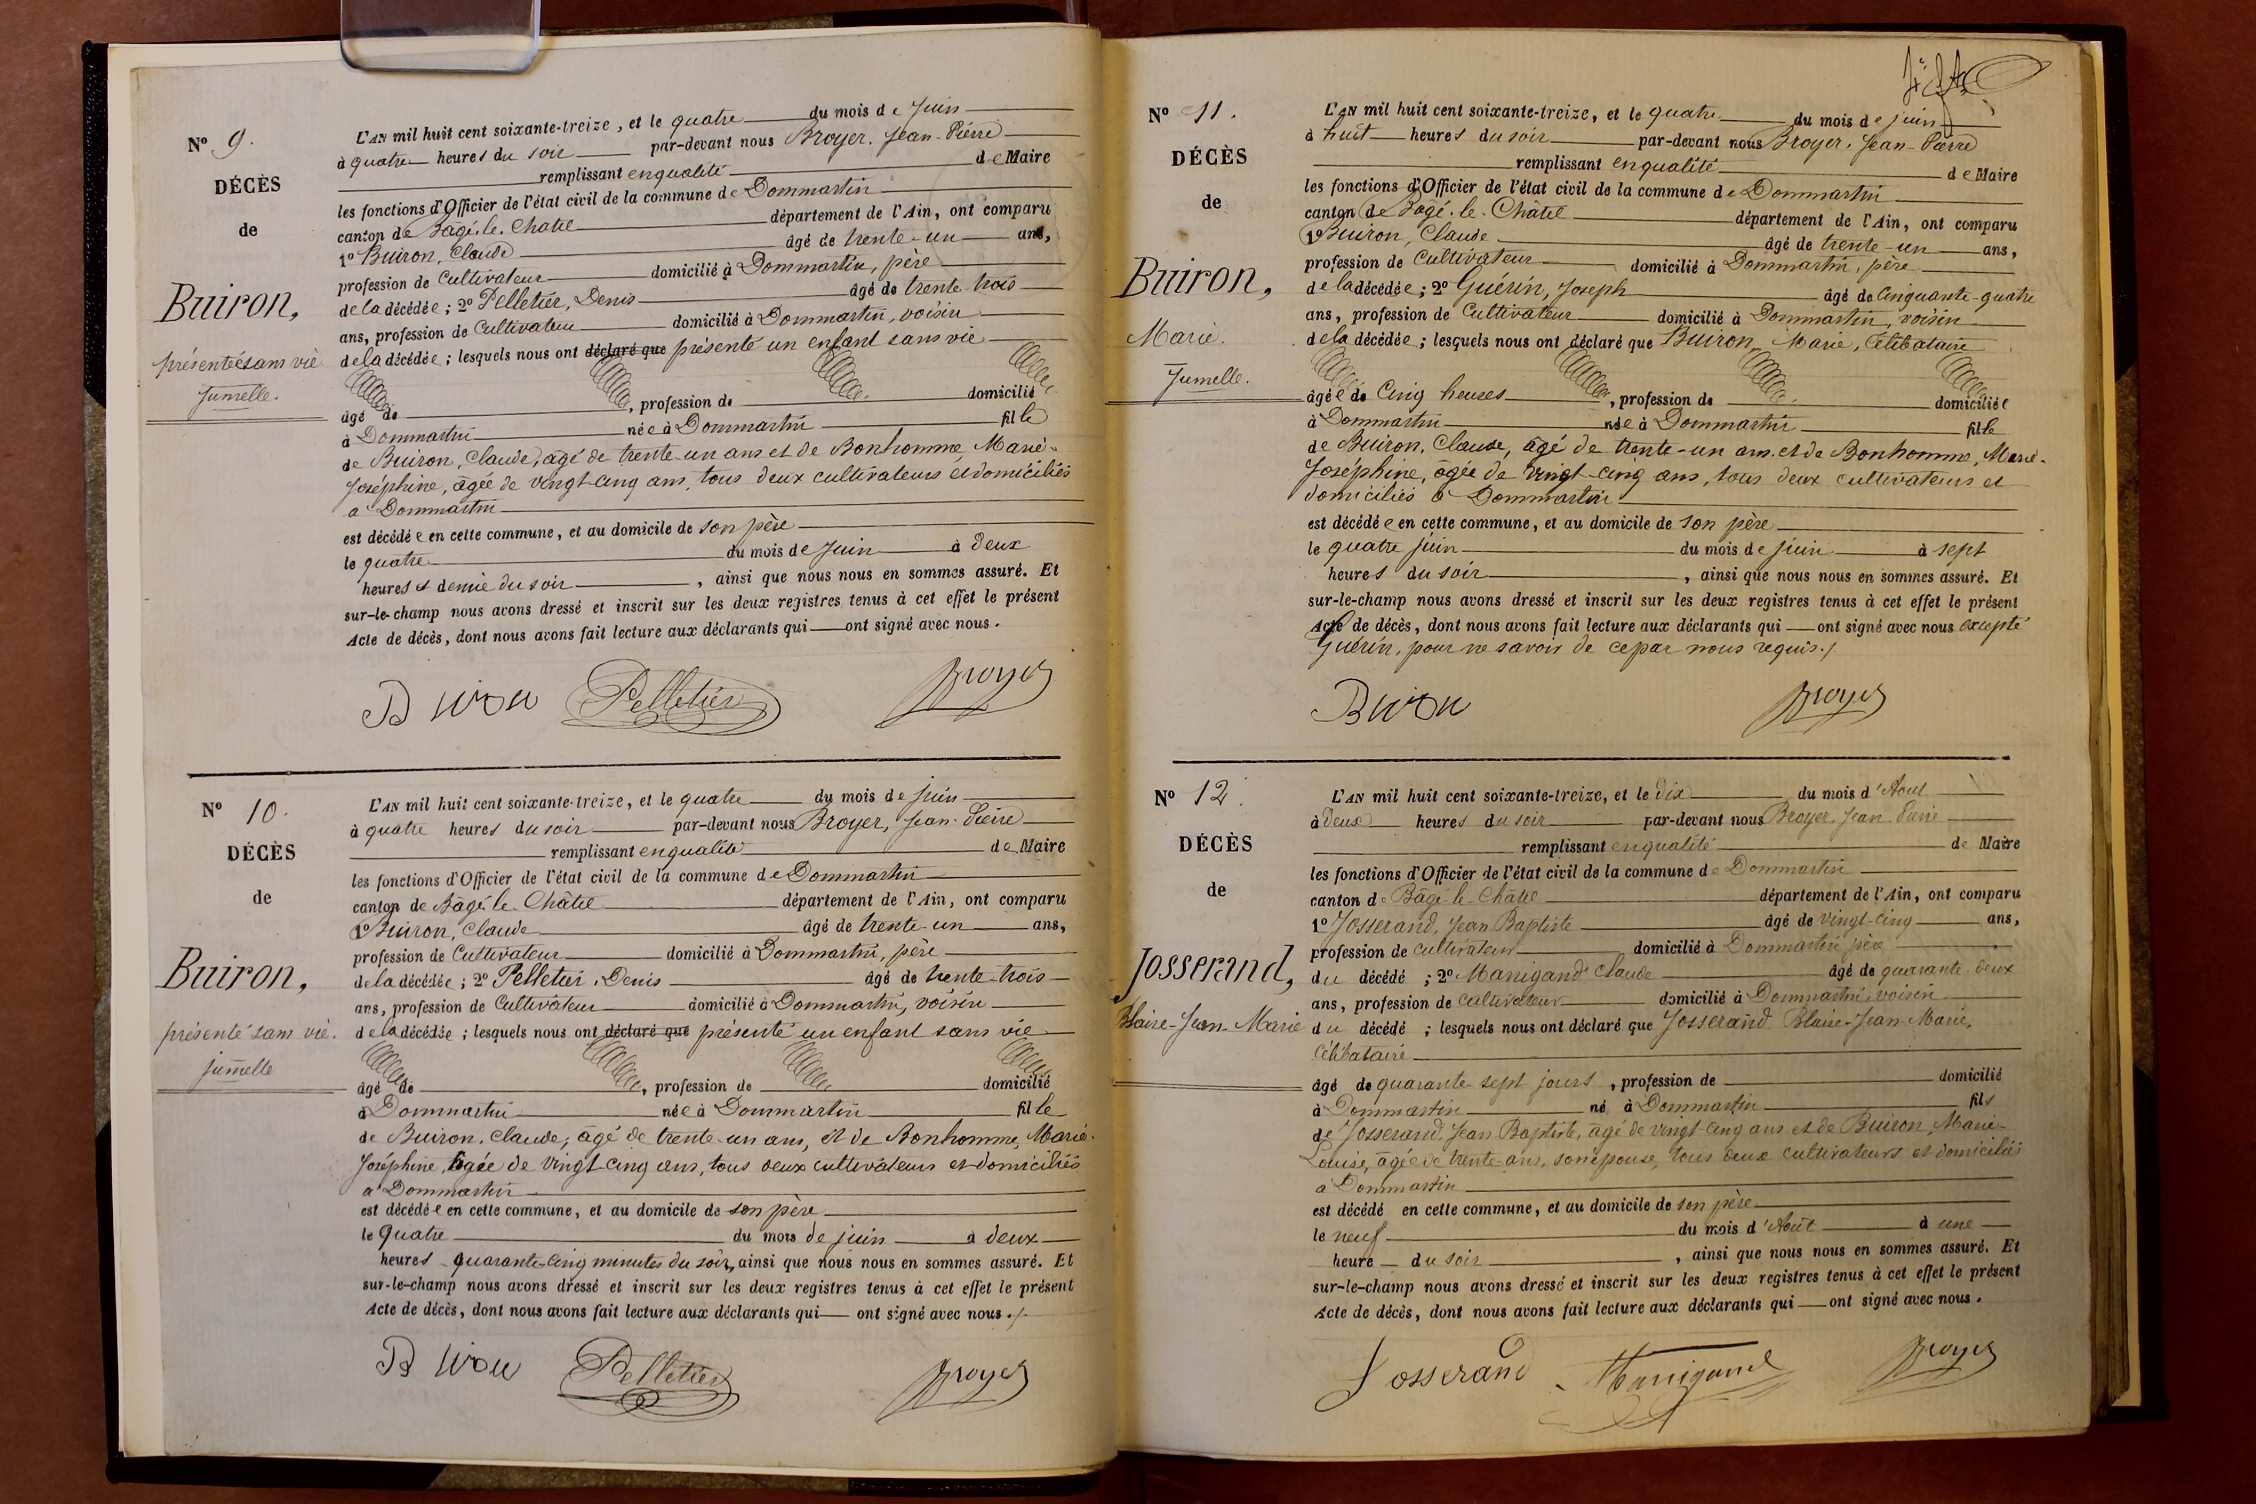 Nº 9.
DÉCÈS
de
Buiron,
présentée sans vie
Jumelle.
L'AN mil huit cent soixante-treize, et le quatre du mois de Juin
à quatre heures du soir par-devant nous Broyer, Jean-Pierre
remplissant en qualité de Maire
les fonctions d'Officier de l'état civil de la commune de Dommartin
canton de Bâgé-le-Châtel département de l'Ain, ont comparu
1º Buiron, Claude âgé de trente-un ans,
profession de Cultivateur domicilié à Dommartin, père
de la décédée; 2º Pelletier, Denis âgé de trente-trois
ans, profession de Cultivateur domicilié à Dommartin, voisin
de la décédée; lesquels nous ont déclaré que présenté un enfant sans vie
âgé de , profession de domicilié
à Dommartin née à Dommartin fille
de Buiron, Claude, âgé de trente-un ans et de Bonhomme, Marie-
Joséphine, âgée de vingt-cinq ans, tous deux cultivateurs et domiciliés
à Dommartin
est décédée en cette commune, et au domicile de son père
le quatre du mois de Juin à deux
heures et demie du soir , ainsi que nous nous en sommes assuré. Et
sur-le-champ nous avons dressé et inscrit sur les deux registres tenus à cet effet le présent
Acte de décès, dont nous avons fait lecture aux déclarants qui ont signé avec nous.
Buiron Pelletier Broyer
Nº 10.
DÉCÈS
de
Buiron,
présenté sans vie.
jumelle
L'AN mil huit cent soixante-treize, et le quatre du mois de juin
à quatre heures du soir par-devant nous Broyer, Jean-Pierre
remplissant en qualité de Maire
les fonctions d'Officier de l'état civil de la commune de Dommartin
canton de Bâgé-le-Châtel département de l'Ain, ont comparu
1º Buiron, Claude âgé de trente-un ans,
profession de Cultivateur domicilié à Dommartin, père
de la décédée; 2º Pelletier, Denis âgé de trente-trois
ans, profession de Cultivateur domicilié à Dommartin, voisin
de la décédée; lesquels nous ont déclaré que présenté un enfant sans vie
âgé de , profession de domicilié
à Dommartin née à Dommartin fille
de Buiron, Claude, âgé de trente-un ans, et de Bonhomme, Marie-
Joséphine, âgée de vingt-cinq ans, tous deux cultivateurs et domiciliés
à Dommartin
est décédée en cette commune, et au domicile de son père
le Quatre du mois de juin à deux
heures quarante-cinq minutes du soir, ainsi que nous nous en sommes assuré. Et
sur-le-champ nous avons dressé et inscrit sur les deux registres tenus à cet effet le présent
Acte de décès, dont nous avons fait lecture aux déclarants qui ont signé avec nous.
Buiron Pelletier Broyer
Nº 11.
DÉCÈS
de
Buiron,
Marie.
Jumelle.
L'AN mil huit cent soixante-treize, et le quatre du mois de juin
à huit heures du soir par-devant nous Broyer, Jean-Pierre
remplissant en qualité de Maire
les fonctions d'Officier de l'état civil de la commune de Dommartin
canton de Bâgé-le-Châtel département de l'Ain, ont comparu
1º Buiron, Claude âgé de trente-un ans,
profession de Cultivateur domicilié à Dommartin, père
de la décédée; 2º Guérin, Joseph âgé de Cinquante-quatre
ans, profession de Cultivateur domicilié à Dommartin, voisin
de la décédée; lesquels nous ont déclaré que Buiron, Marie, Célibataire
âgée de Cinq heures , profession de domiciliée
à Dommartin née à Dommartin fille
de Buiron, Claude, âgé de trente-un ans et de Bonhomme, Marie-
Joséphine, âgée de vingt-cinq ans, tous deux cultivateurs et
domiciliés à Dommartin
est décédée en cette commune, et au domicile de son père
le quatre juin du mois de juin à sept
heures du soir , ainsi que nous nous en sommes assuré. Et
sur-le-champ nous avons dressé et inscrit sur les deux registres tenus à cet effet le présent
Acte de décès, dont nous avons fait lecture aux déclarants qui ont signé avec nous excepté
Guérin, pour ne savoir de ce par nous requis.
Buiron Broyer
Nº 12.
DÉCÈS
de
Josserand,
Blaise-Jean-Marie
L'AN mil huit cent soixante-treize, et le dix du mois d'Août
à deux heures du soir par-devant nous Broyer, Jean-Pierre
remplissant en qualité de Maire
les fonctions d'Officier de l'état civil de la commune de Dommartin
canton de Bâgé-le-Châtel département de l'Ain, ont comparu
1º Josserand, Jean Baptiste âgé de vingt-cinq ans,
profession de cultivateur domicilié à Dommartin père
du décédé; 2º Manigand Claude âgé de quarante-deux
ans, profession de cultivateur domicilié à Dommartin, voisin
du décédé; lesquels nous ont déclaré que Josserand Blaise-Jean-Marie,
Célibataire
âgé de quarante-sept jours, profession de domicilié
à Dommartin né à Dommartin fils
de Josserand, Jean Baptiste, âgé de vingt-cinq ans et de Buiron, Marie-
Louise, âgée de trente-ans, son épouse, tous deux cultivateurs et domiciliés
à Dommartin
est décédé en cette commune, et au domicile de son père
le neuf du mois d'Août à une
heure du soir , ainsi que nous nous en sommes assuré. Et
sur-le-champ nous avons dressé et inscrit sur les deux registres tenus à cet effet le présent
Acte de décès, dont nous avons fait lecture aux déclarants qui ont signé avec nous.
Josserand Manigand Broyer